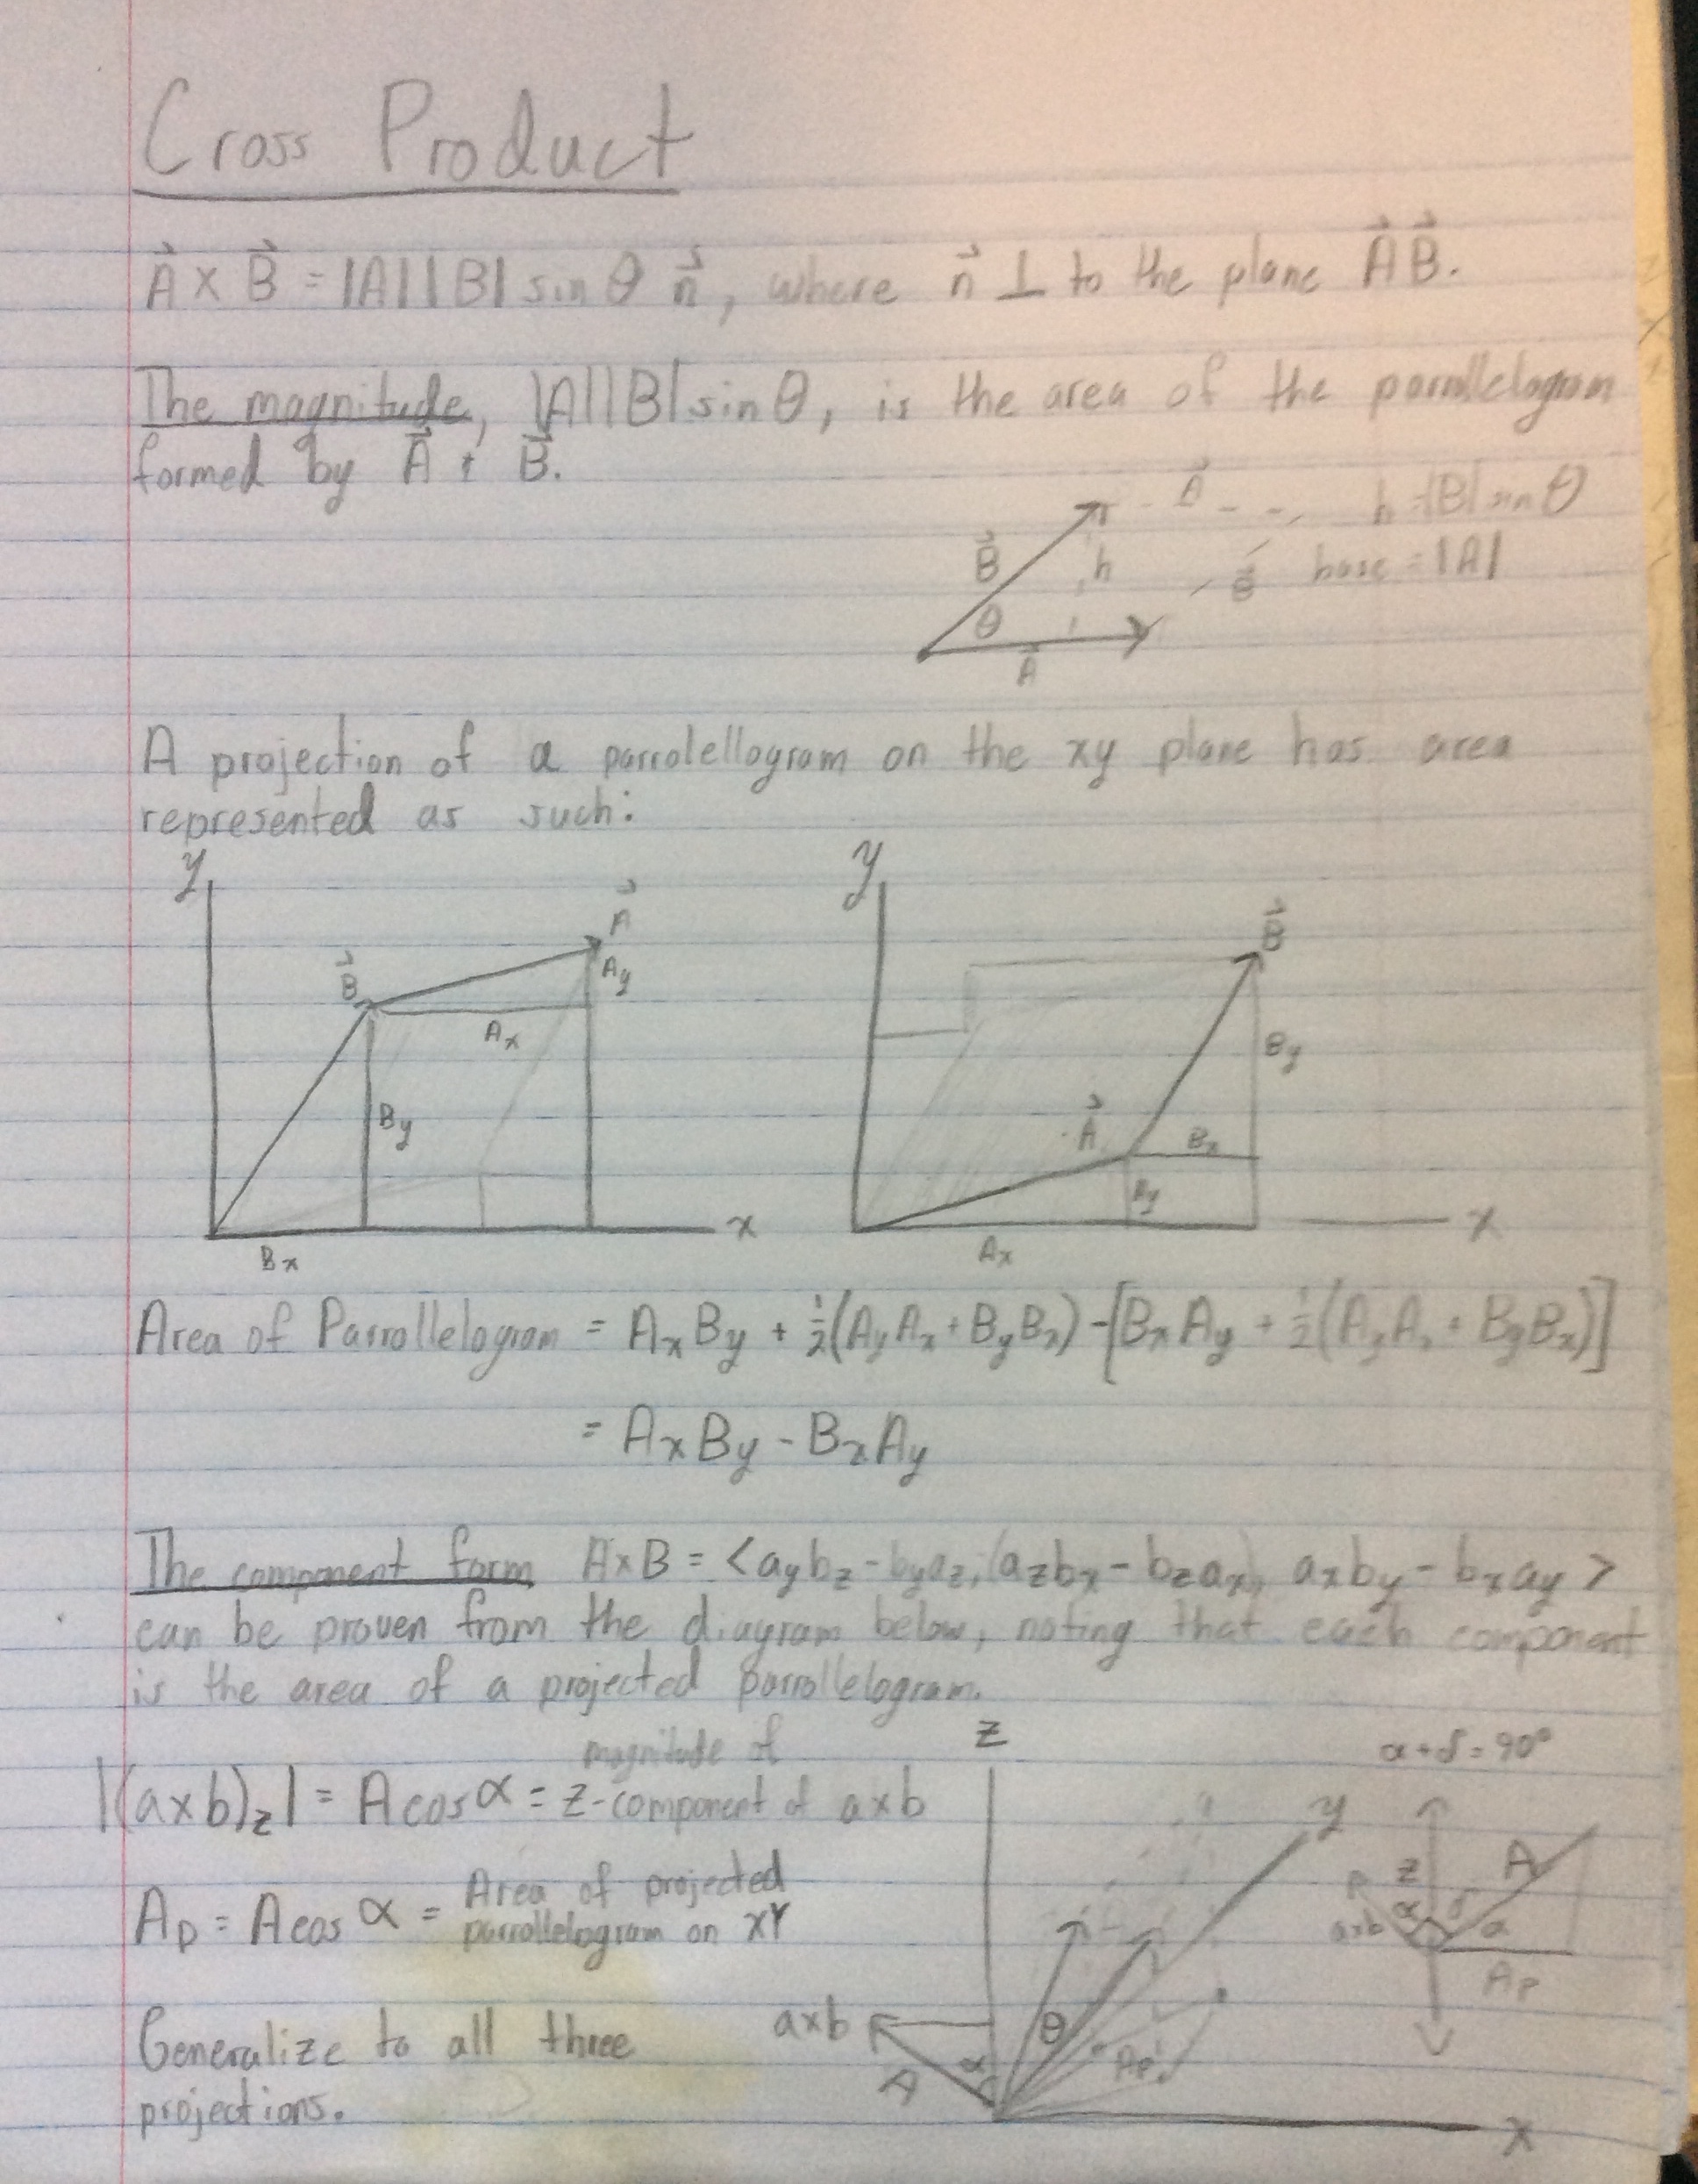 Cross Product
A⃗ × B⃗ = |A||B| sin θ n⃗, where n⃗ ⊥ to the plane A⃗B⃗.
The magnitude, |A||B| sin θ, is the area of the parrallelogram
formed by A⃗ & B⃗.
A⃗ h = |B| sin θ
B⃗ h B⃗ base = |A|
θ
A⃗
A projection of a parrolellogram on the xy plane has area
represented as such:
y y
A⃗ B⃗
B⃗ Ay
Ax By
By A⃗ Bx
Ay
x x
Bx Ax
Area of Parrollelogram = AxBy + ½(AyAx + ByBx) - [BxAy + ½(AyAx + ByBx)]
= AxBy - BxAy
The component form A×B = <aybz - byaz, (azbx - bzax), axby - bxay>
can be proven from the diagram below, noting that each component
is the area of a projected parrollelogram.
|(a×b)z| = A cos α = magnitude of
z-component of a×b
Ap = A cos α = Area of projected
parrollelogram on XY
Generalize to all three
projections.
z α + δ = 90°
y
z A
α δ
a×b α
Ap
a×b θ
A α Ap
x